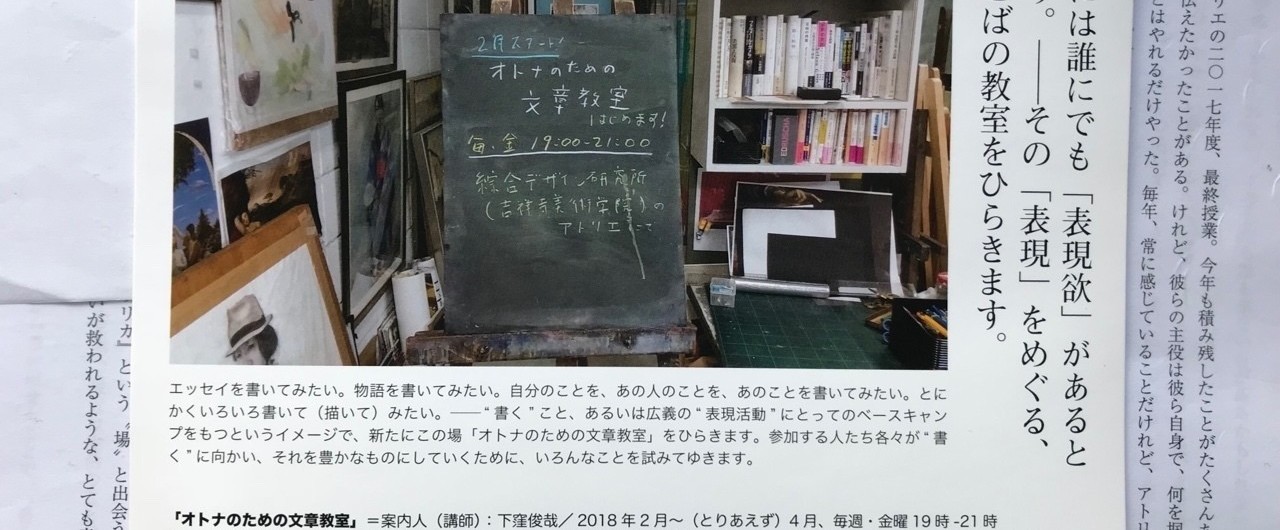 には誰にでも「表現欲」があると
す。――その「表現」をめぐる、
とばの教室をひらきます。
2月スタート!
オトナのための
文章教室
はじめます!
毎・金 19:00-21:00
綜合デザイン研究所
(吉祥寺美術学院)の
アトリエにて
エッセイを書いてみたい。物語を書いてみたい。自分のことを、あの人のことを、あのことを書いてみたい。とに
かくいろいろ書いて（描いて）みたい。――“書く”こと、あるいは広義の“表現活動”にとってのベースキャン
プをもつというイメージで、新たにこの場「オトナのための文章教室」をひらきます。参加する人たち各々が“書
く”に向かい、それを豊かなものにしていくために、いろんなことを試みてゆきます。
「オトナのための文章教室」＝案内人（講師）：下窪俊哉／2018年2月〜（とりあえず）4月、毎週・金曜19時-21時
リエの二〇一七年度、最終授業。今年も積み残したことがたくさん
伝えたかったことがある。けれど、彼らの主役は彼ら自身で、何を
とはやれるだけやった。毎年、常に感じていることだけれど、アトリ
リカ』という〝場〟と出会う
いが救われるような、とても